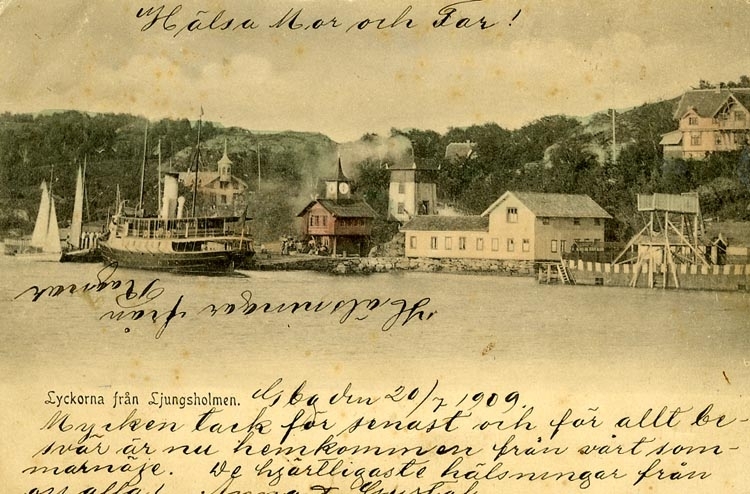 Hälsa Mor och Far!
Hälsningar från
Ragnar
Lyckorna från Ljungsholmen. Gbg den 20/7 1909.
Mycken tack för senast och för allt be-
svär är nu hemkommen från vårt som-
marnöje. De hjärtligaste hälsningar från
oss alla! Anna & Gustaf